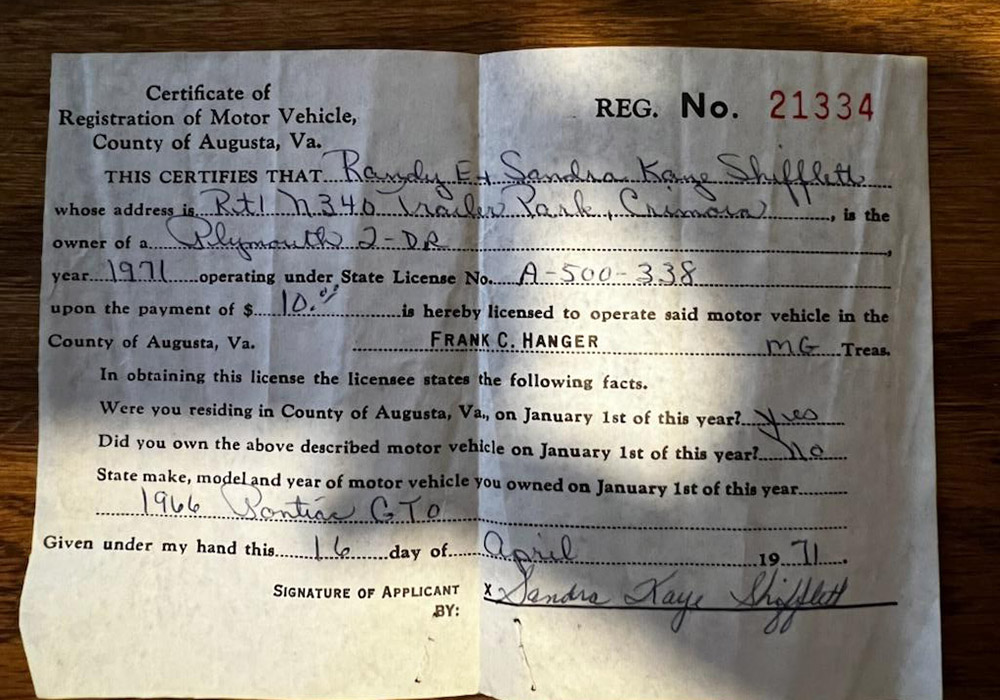 Certificate of
Registration of Motor Vehicle,
County of Augusta, Va.
REG. No. 21334
THIS CERTIFIES THAT Randy E + Sandra Kaye Shifflett
whose address is Rt 1 N340 Trailer Park, Crimora, is the
owner of a Plymouth 2-DR
year 1971 operating under State License No. A-500-338
upon the payment of $ 10.00 is hereby licensed to operate said motor vehicle in the
County of Augusta, Va. FRANK C. HANGER MG Treas.
In obtaining this license the licensee states the following facts.
Were you residing in County of Augusta, Va., on January 1st of this year? yes
Did you own the above described motor vehicle on January 1st of this year? No
State make, model and year of motor vehicle you owned on January 1st of this year
1966 Pontiac GTO
Given under my hand this 16 day of April 1971.
SIGNATURE OF APPLICANT X Sandra Kaye Shifflett
BY: